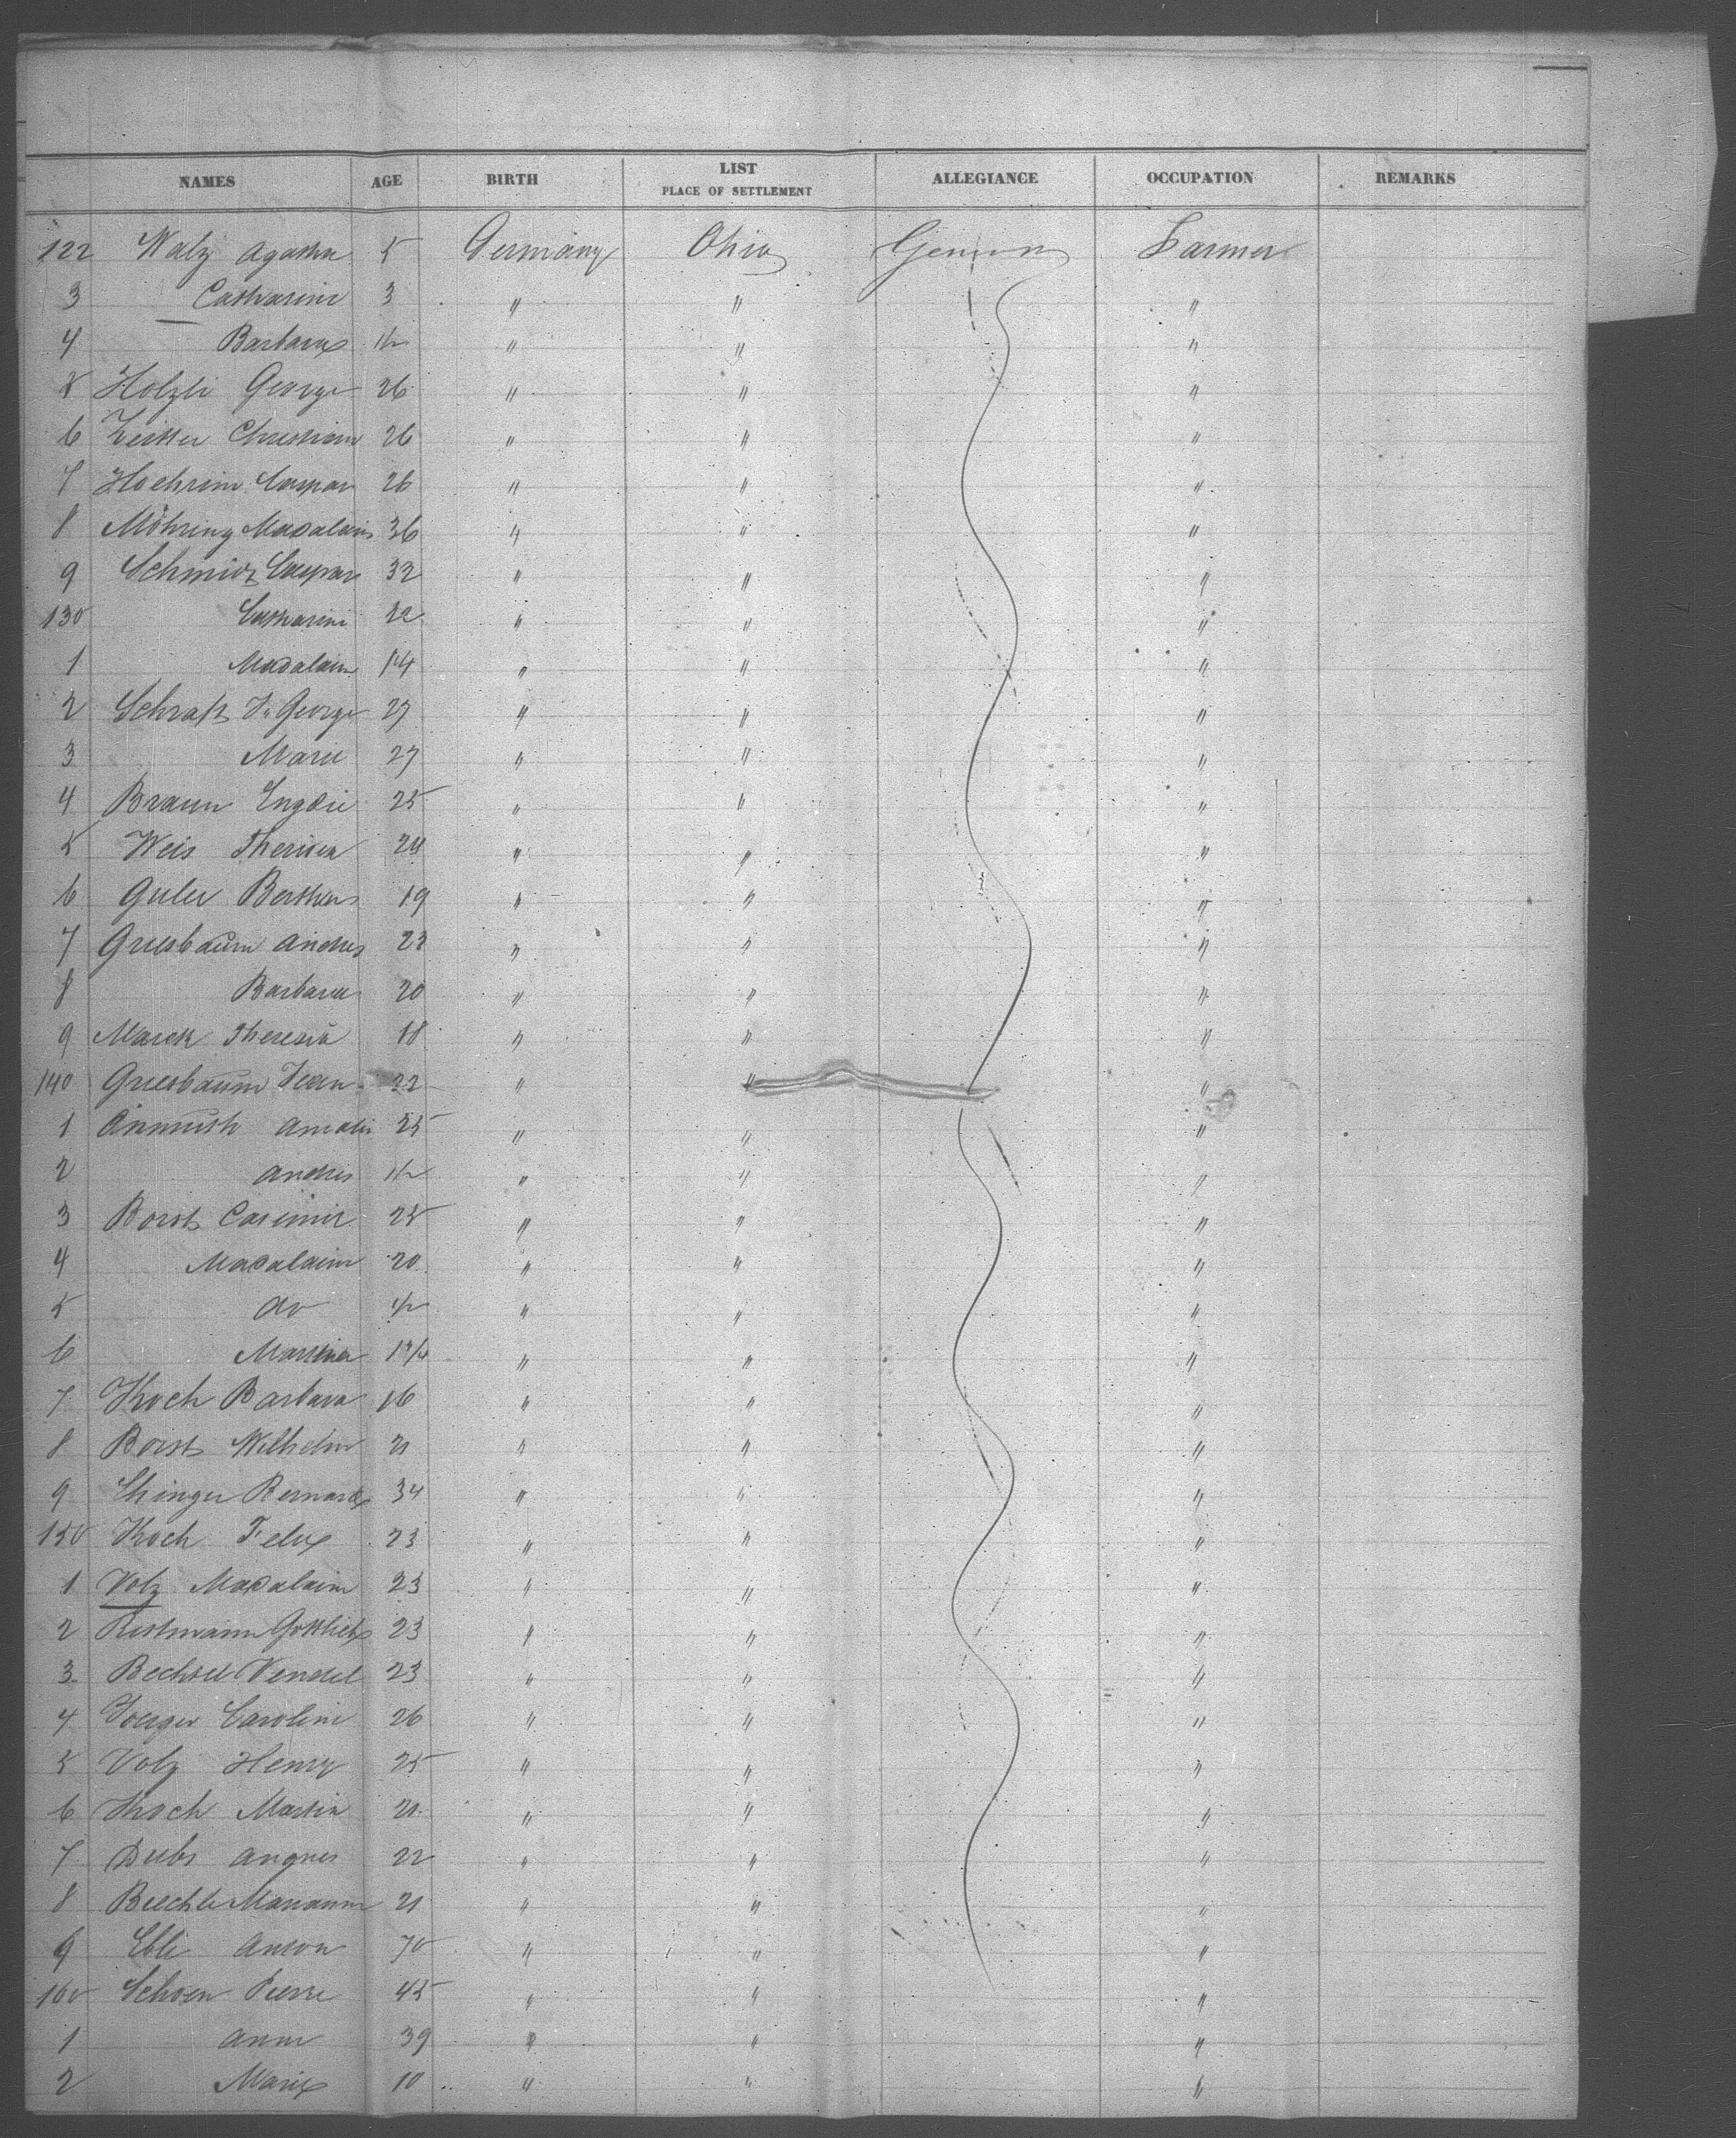 NAMES AGE BIRTH LIST PLACE OF SETTLEMENT ALLEGIANCE OCCUPATION REMARKS
122 Walz Agatha 5 Germany Ohio German Farmer
3 Catharine 3 " " "
4 Barbara 1/2 " " "
5 Holzli George 26 " " "
6 Christian 26 " " "
7 Caspar 26 " " "
8 Möhring Madalain 36 " " "
9 Schmidz Caspar 32 " " "
130 Catharine 22 " " "
1 Madalain " " "
2 George 27 " " "
3 Marie 27 " " "
4 Braun 25 " " "
5 Weis 24 " " "
6 Guler Bertha 19 " " "
7 Griesbaum Andres 23 " " "
8 Barbara 20 " " "
9 Marck Theresia 18 " " "
140 Griesbaum Jean 22 " " "
1 Amalie 25 " " "
2 Andres 1/2 " " "
3 Borst Casimir 25 " " "
4 Madalain 20 " " "
5 do 1/2 " " "
6 " " "
7 Koch Barbara 16 " " "
8 Borst Wilhelm 21 " " "
9 Ehinger Bernard 34 " " "
150 Koch Felix 23 " " "
1 Volz Madalain 23 " " "
2 Gottlieb 23 " " "
3 Vendel 23 " " "
4 Joerger Caroline 26 " " "
5 Volz Henry 25 " " "
6 Koch Martin 21 " " "
7 Dubs Angnes 22 " " "
8 Mariann 21 " " "
9 Ebli Anton 70 " " "
160 Schoen Pierre 45 " " "
1 Anne 39 " " "
2 Marie 10 " " "